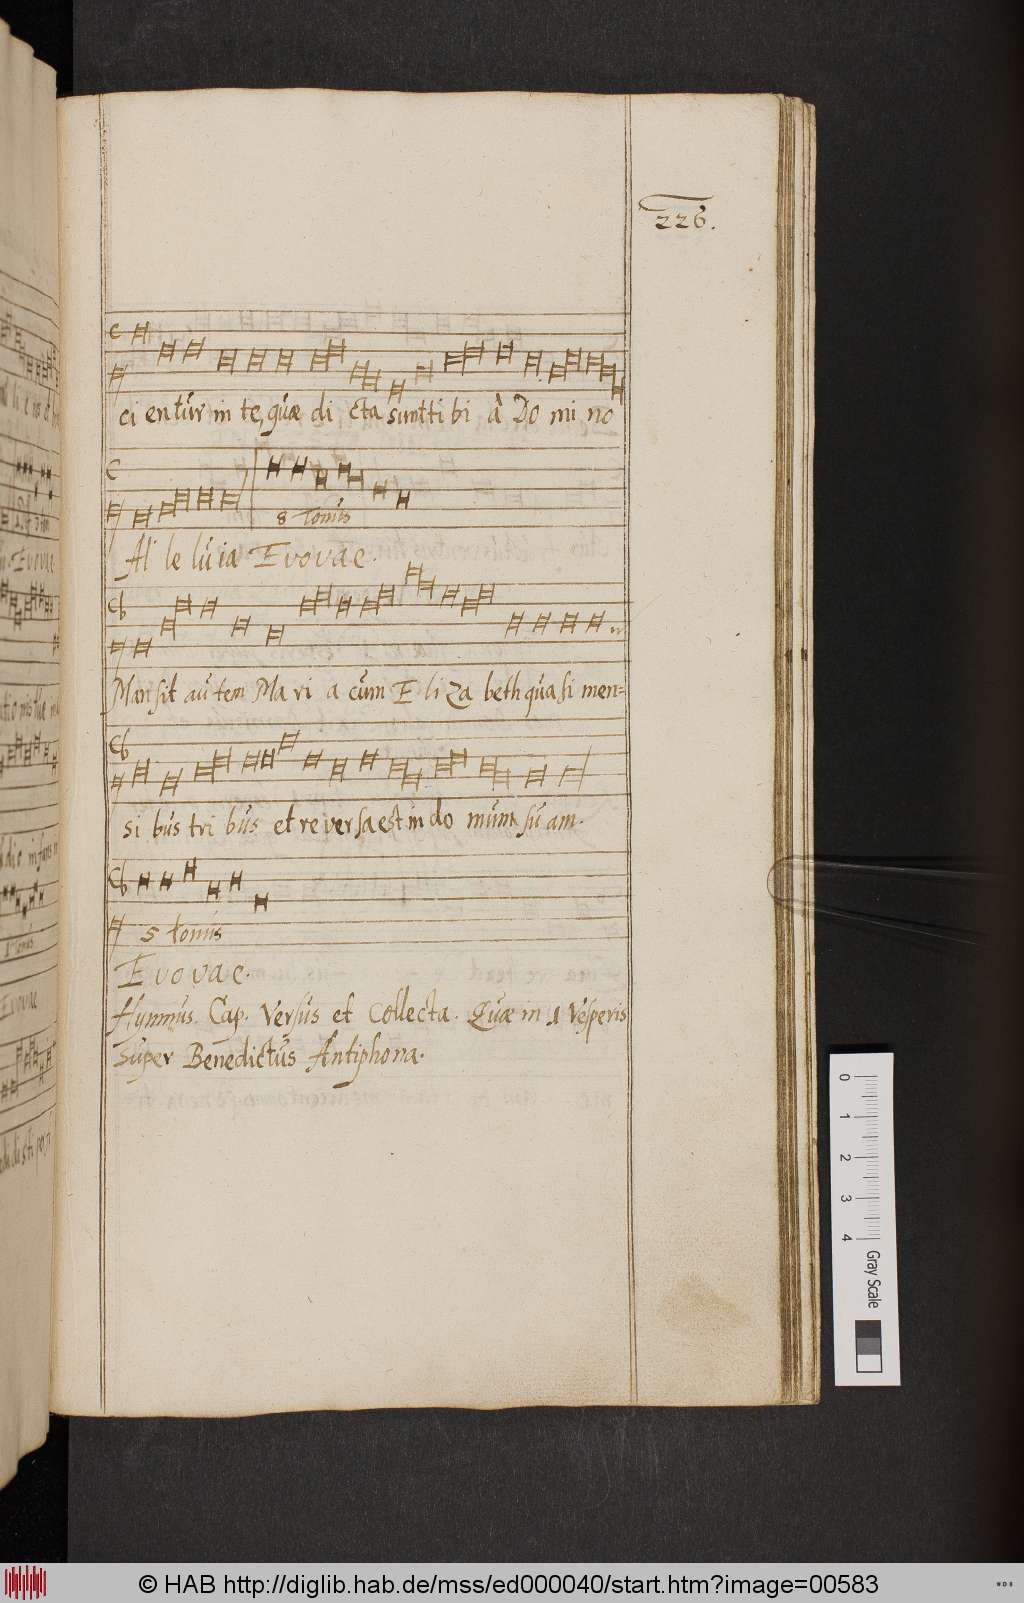 226.
ci entur in te, quæ di cta sunt ti bi à Do mi no
8 Tonus
Al le lu ia Evovae.
Mansit au tem Ma ri a cum E li za beth qua si men=
si bus tri bus et re ver sa est in do mum su am.
5 tonus
Evovae.
Hymnus. Cap. Versus et Collecta. Quæ in 1 Vesperis
Super Benedictus Antiphona.
0 1 2 3 4 Gray Scale
© HAB http://diglib.hab.de/mss/ed000040/start.htm?image=00583